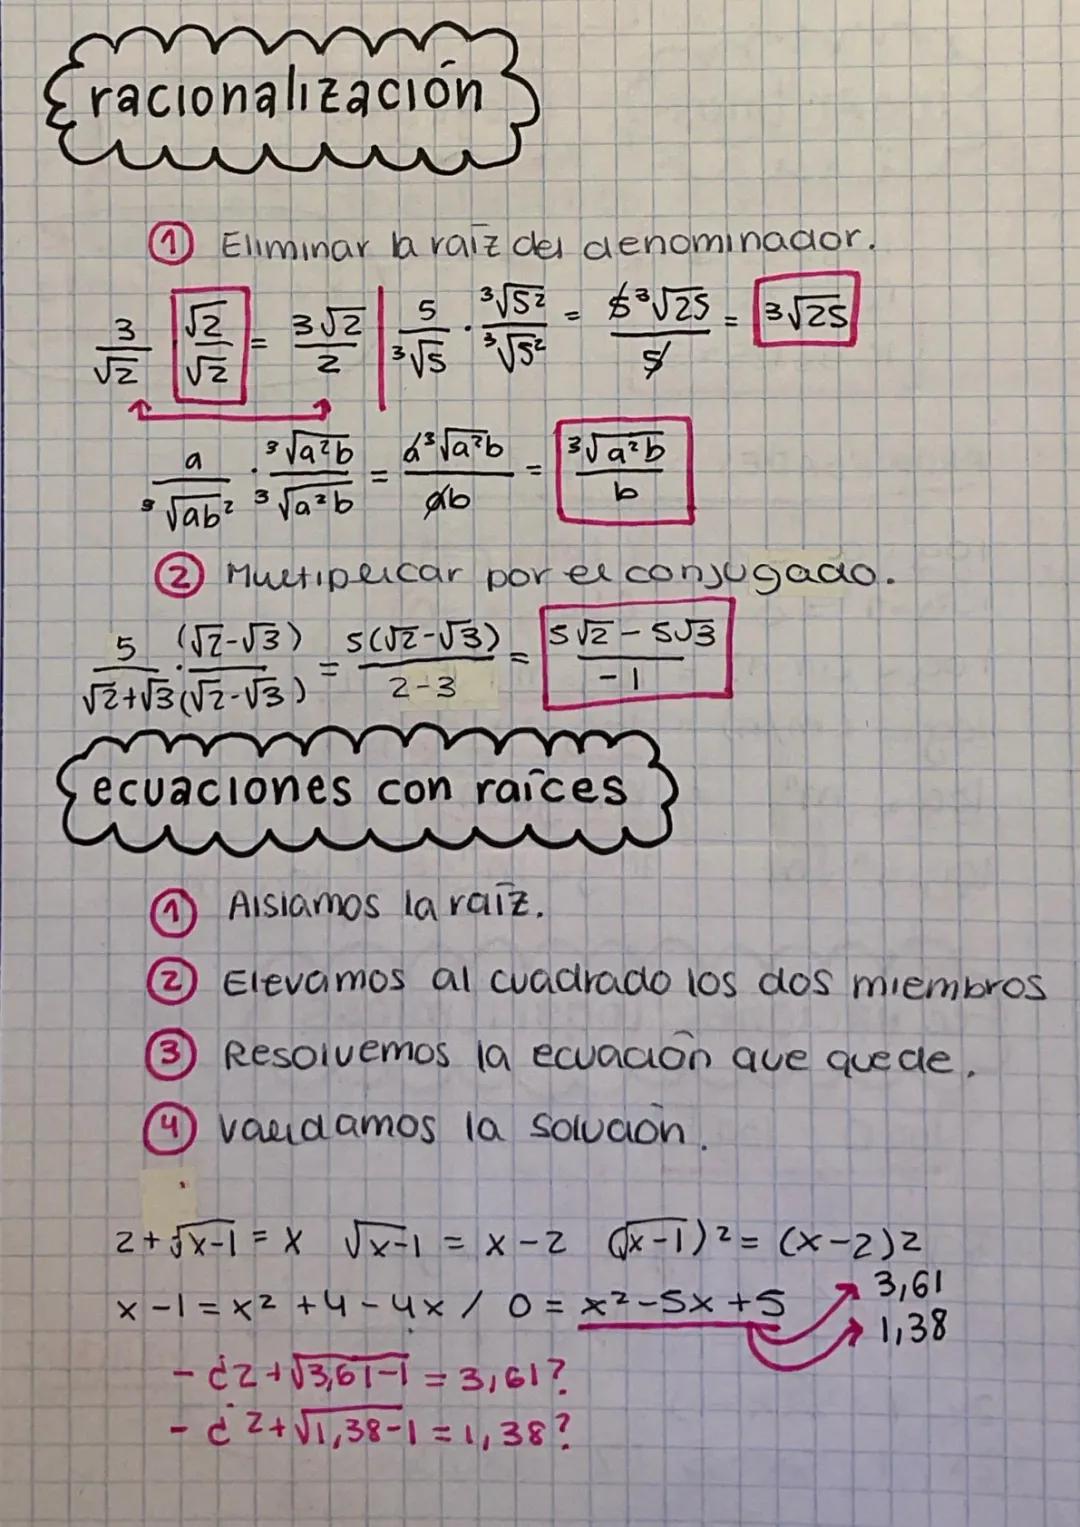 racionalización
① Eliminar la raíz del denominador.
3/√2 · √2/√2 = 3√2/2 | 5/³√5 · ³√5²/³√5² = 5³√25/5 = ³√25
a/³√ab² · ³√a²b/³√a²b = a³√a²b/ab = ³√a²b/b
② Multiplicar por el conjugado.
5/√2+√3 · (√2-√3)/(√2-√3) = 5(√2-√3)/2-3 = 5√2-5√3/-1
ecuaciones con raíces
① Aislamos la raíz.
② Elevamos al cuadrado los dos miembros
③ Resolvemos la ecuación que quede.
④ validamos la solución.
2+√x-1 = x √x-1 = x-2 (√x-1)2 = (x-2)2
x-1 = x²+4-4x / 0 = x²-5x+5
3,61
1,38
- ¿2+√3,61-1 = 3,61?
- ¿2+√1,38-1 = 1,38?